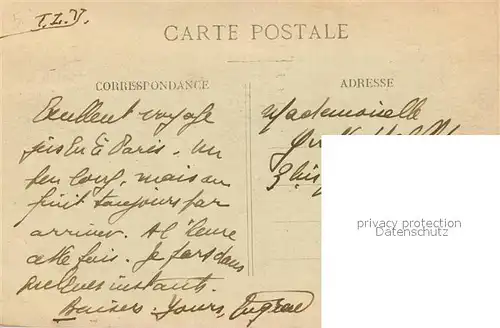 T.L.V.
CARTE POSTALE
CORRESPONDANCE
Excellent voyage
jusqu'à Paris. Un
peu long, mais on
finit toujours par
arriver. A l'heure
cette fois. Je pars dans
quelques instants.
Baisers. Yours,
ADRESSE
Mademoiselle
3 bis
privacy protection
Datenschutz